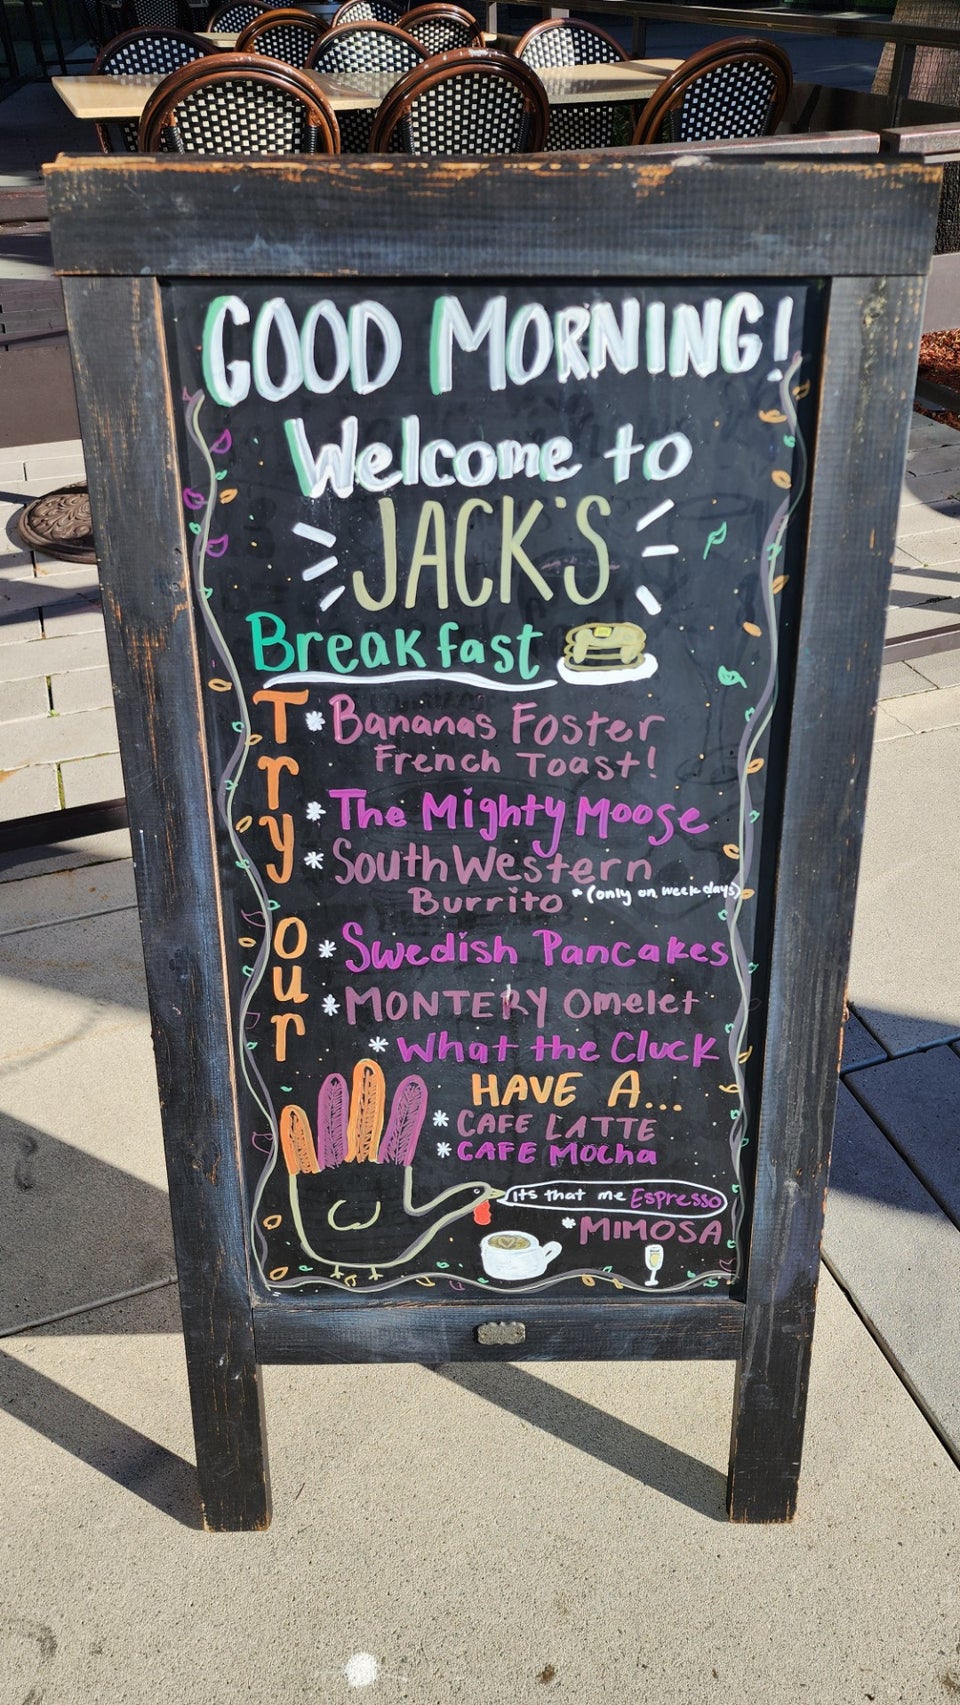 GOOD MORNING!
Welcome to
JACK'S
Breakfast
Try our
* Bananas Foster
French Toast!
* The Mighty Moose
* SouthWestern
Burrito * (only on weekdays)
* Swedish Pancakes
* MONTERY Omelet
* What the Cluck
HAVE A...
* CAFE LATTE
* CAFE Mocha
Its that me Espresso
* MIMOSA